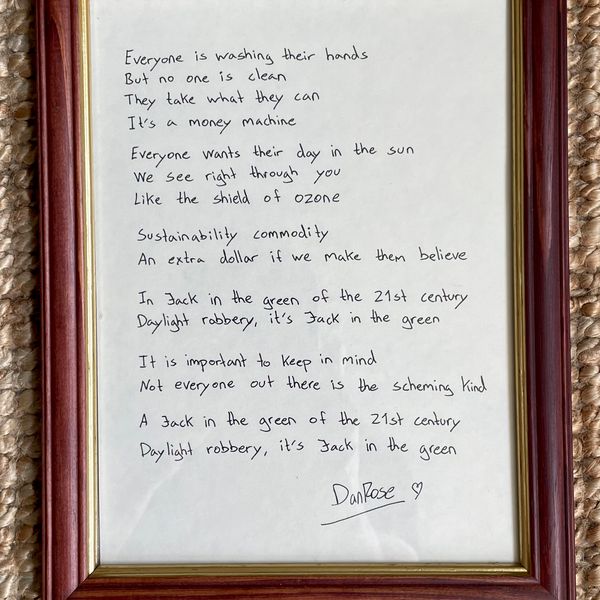 Everyone is washing their hands
But no one is clean
They take what they can
It's a money machine
Everyone wants their day in the sun
We see right through you
Like the shield of ozone
Sustainability commodity
An extra dollar if we make them believe
In Jack in the green of the 21st century
Daylight robbery, it's Jack in the green
It is important to keep in mind
Not everyone out there is the scheming kind
A Jack in the green of the 21st century
Daylight robbery, it's Jack in the green
DanRose ♡